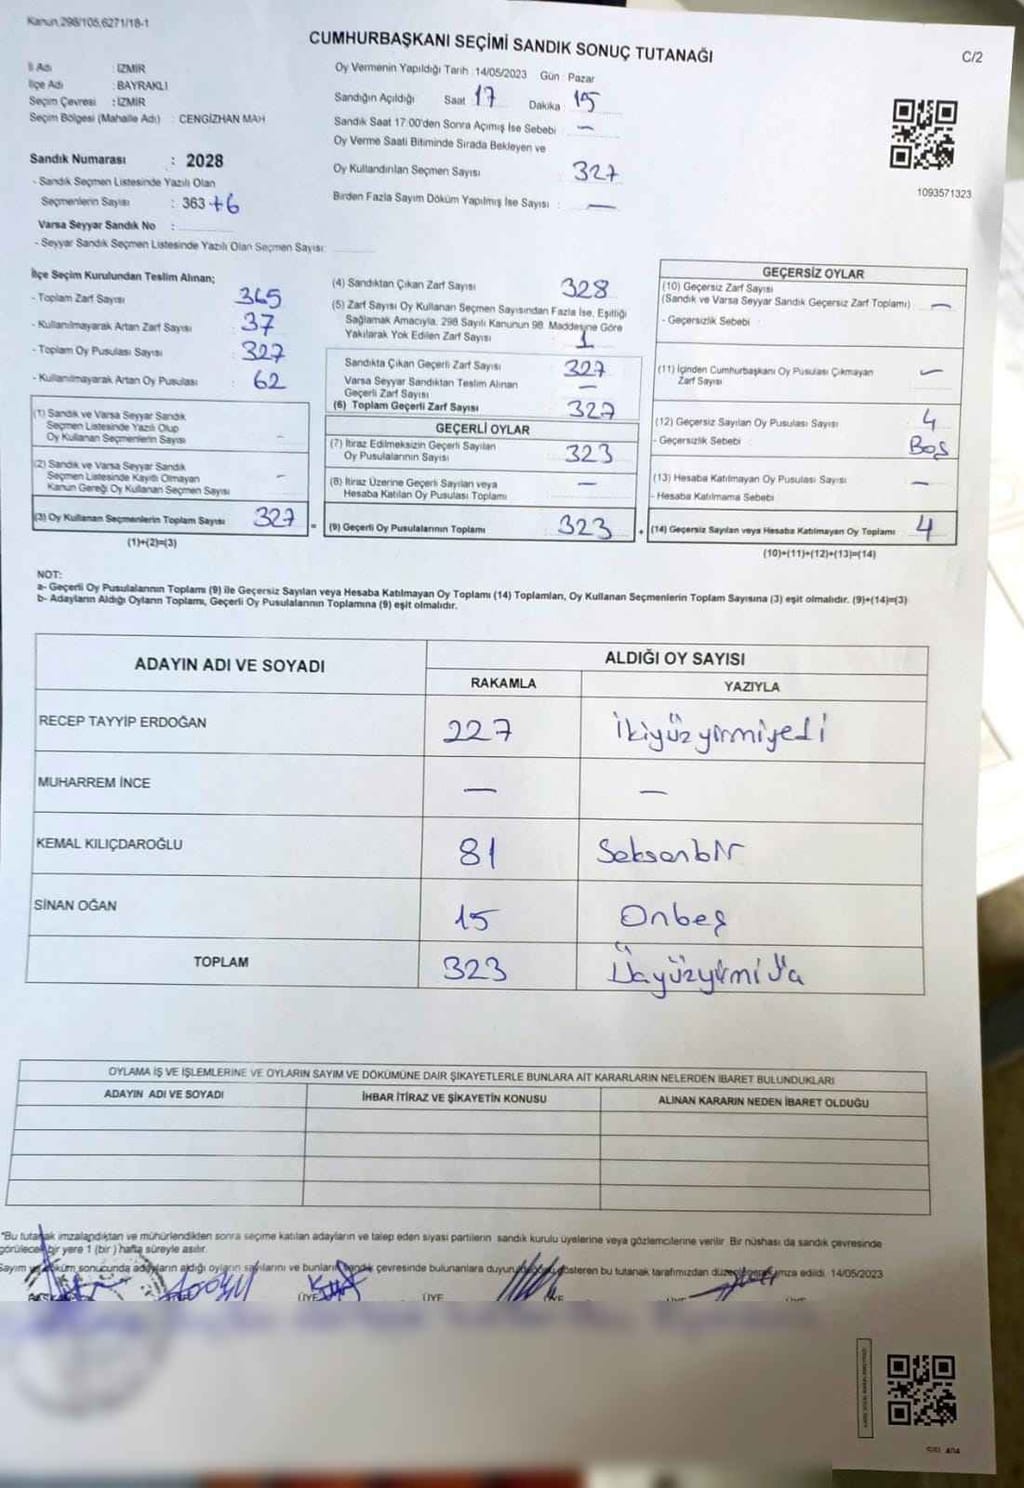 Kanun,298/105,6271/18-1
CUMHURBAŞKANI SEÇİMİ SANDIK SONUÇ TUTANAĞI
C/2
İl Adı : İZMİR
İlçe Adı : BAYRAKLI
Seçim Çevresi : İZMİR
Seçim Bölgesi (Mahalle Adı) : CENGİZHAN MAH
Sandık Numarası : 2028
- Sandık Seçmen Listesinde Yazılı Olan
Seçmenlerin Sayısı : 363 +6
Varsa Seyyar Sandık No :
- Seyyar Sandık Seçmen Listesinde Yazılı Olan Seçmen Sayısı:
Oy Vermenin Yapıldığı Tarih : 14/05/2023 Gün : Pazar
Sandığın Açıldığı Saat 17 Dakika : 15
Sandık Saat 17:00'den Sonra Açımış İse Sebebi : —
Oy Verme Saati Bitiminde Sırada Bekleyen ve
Oy Kullandırılan Seçmen Sayısı 327
Birden Fazla Sayım Döküm Yapılmış İse Sayısı : —
1093571323
İlçe Seçim Kurulundan Teslim Alınan;
- Toplam Zarf Sayısı : 365
- Kullanılmayarak Artan Zarf Sayısı : 37
- Toplam Oy Pusulası Sayısı : 327
- Kullanılmayarak Artan Oy Pusulası : 62
(1) Sandık ve Varsa Seyyar Sandık
Seçmen Listesinde Yazılı Olup
Oy Kullanan Seçmenlerin Sayısı -
(2) Sandık ve Varsa Seyyar Sandık
Seçmen Listesinde Kayıtlı Olmayan
Kanun Gereği Oy Kullanan Seçmen Sayısı -
(3) Oy Kullanan Seçmenlerin Toplam Sayısı 327
(1)+(2)=(3)
(4) Sandıktan Çıkan Zarf Sayısı 328
(5) Zarf Sayısı Oy Kullanan Seçmen Sayısından Fazla İse, Eşitliği
Sağlamak Amacıyla, 298 Sayılı Kanunun 98. Maddesine Göre
Yakılarak Yok Edilen Zarf Sayısı 1
Sandıkta Çıkan Geçerli Zarf Sayısı 327
Varsa Seyyar Sandıktan Teslim Alınan
Geçerli Zarf Sayısı —
(6) Toplam Geçerli Zarf Sayısı 327
GEÇERLİ OYLAR
(7) İtiraz Edilmeksizin Geçerli Sayılan
Oy Pusulalarının Sayısı 323
(8) İtiraz Üzerine Geçerli Sayılan veya
Hesaba Katılan Oy Pusulası Toplamı —
= (9) Geçerli Oy Pusulalarının Toplamı 323
GEÇERSİZ OYLAR
(10) Geçersiz Zarf Sayısı
(Sandık ve Varsa Seyyar Sandık Geçersiz Zarf Toplamı) —
- Geçersizlik Sebebi :
(11) İçinden Cumhurbaşkanı Oy Pusulası Çıkmayan
Zarf Sayısı —
(12) Geçersiz Sayılan Oy Pusulası Sayısı 4
- Geçersizlik Sebebi : Boş
(13) Hesaba Katılmayan Oy Pusulası Sayısı —
- Hesaba Katılmama Sebebi
+ (14) Geçersiz Sayılan veya Hesaba Katılmayan Oy Toplamı 4
(10)+(11)+(12)+(13)=(14)
NOT:
a- Geçerli Oy Pusulalarının Toplamı (9) ile Geçersiz Sayılan veya Hesaba Katılmayan Oy Toplamı (14) Toplamları, Oy Kullanan Seçmenlerin Toplam Sayısına (3) eşit olmalıdır. (9)+(14)=(3)
b- Adayların Aldığı Oyların Toplamı, Geçerli Oy Pusulalarının Toplamına (9) eşit olmalıdır.
ADAYIN ADI VE SOYADI
ALDIĞI OY SAYISI
RAKAMLA YAZIYLA
RECEP TAYYİP ERDOĞAN 227 ikiyüzyirmiyedi
MUHARREM İNCE — —
KEMAL KILIÇDAROĞLU 81 Seksenbir
SİNAN OĞAN 15 Onbeş
TOPLAM 323
OYLAMA İŞ VE İŞLEMLERİNE VE OYLARIN SAYIM VE DÖKÜMÜNE DAİR ŞİKAYETLERLE BUNLARA AİT KARARLARIN NELERDEN İBARET BULUNDUKLARI
ADAYIN ADI VE SOYADI İHBAR İTİRAZ VE ŞİKAYETİN KONUSU ALINAN KARARIN NEDEN İBARET OLDUĞU
*Bu tutanak imzalandıktan ve mühürlendikten sonra seçime katılan adayların ve talep eden siyasi partilerin sandık kurulu üyelerine veya gözlemcilerine verilir. Bir nüshası da sandık çevresinde
görülecek bir yere 1 (bir ) hafta süreyle asılır.
Sayım ve döküm sonucunda adayların aldığı oyların sayılarını ve bunların sandık çevresinde bulunanlara duyurulduğunu gösteren bu tutanak tarafımızdan düzenlenerek imza edildi. 14/05/2023
ÜYE ÜYE